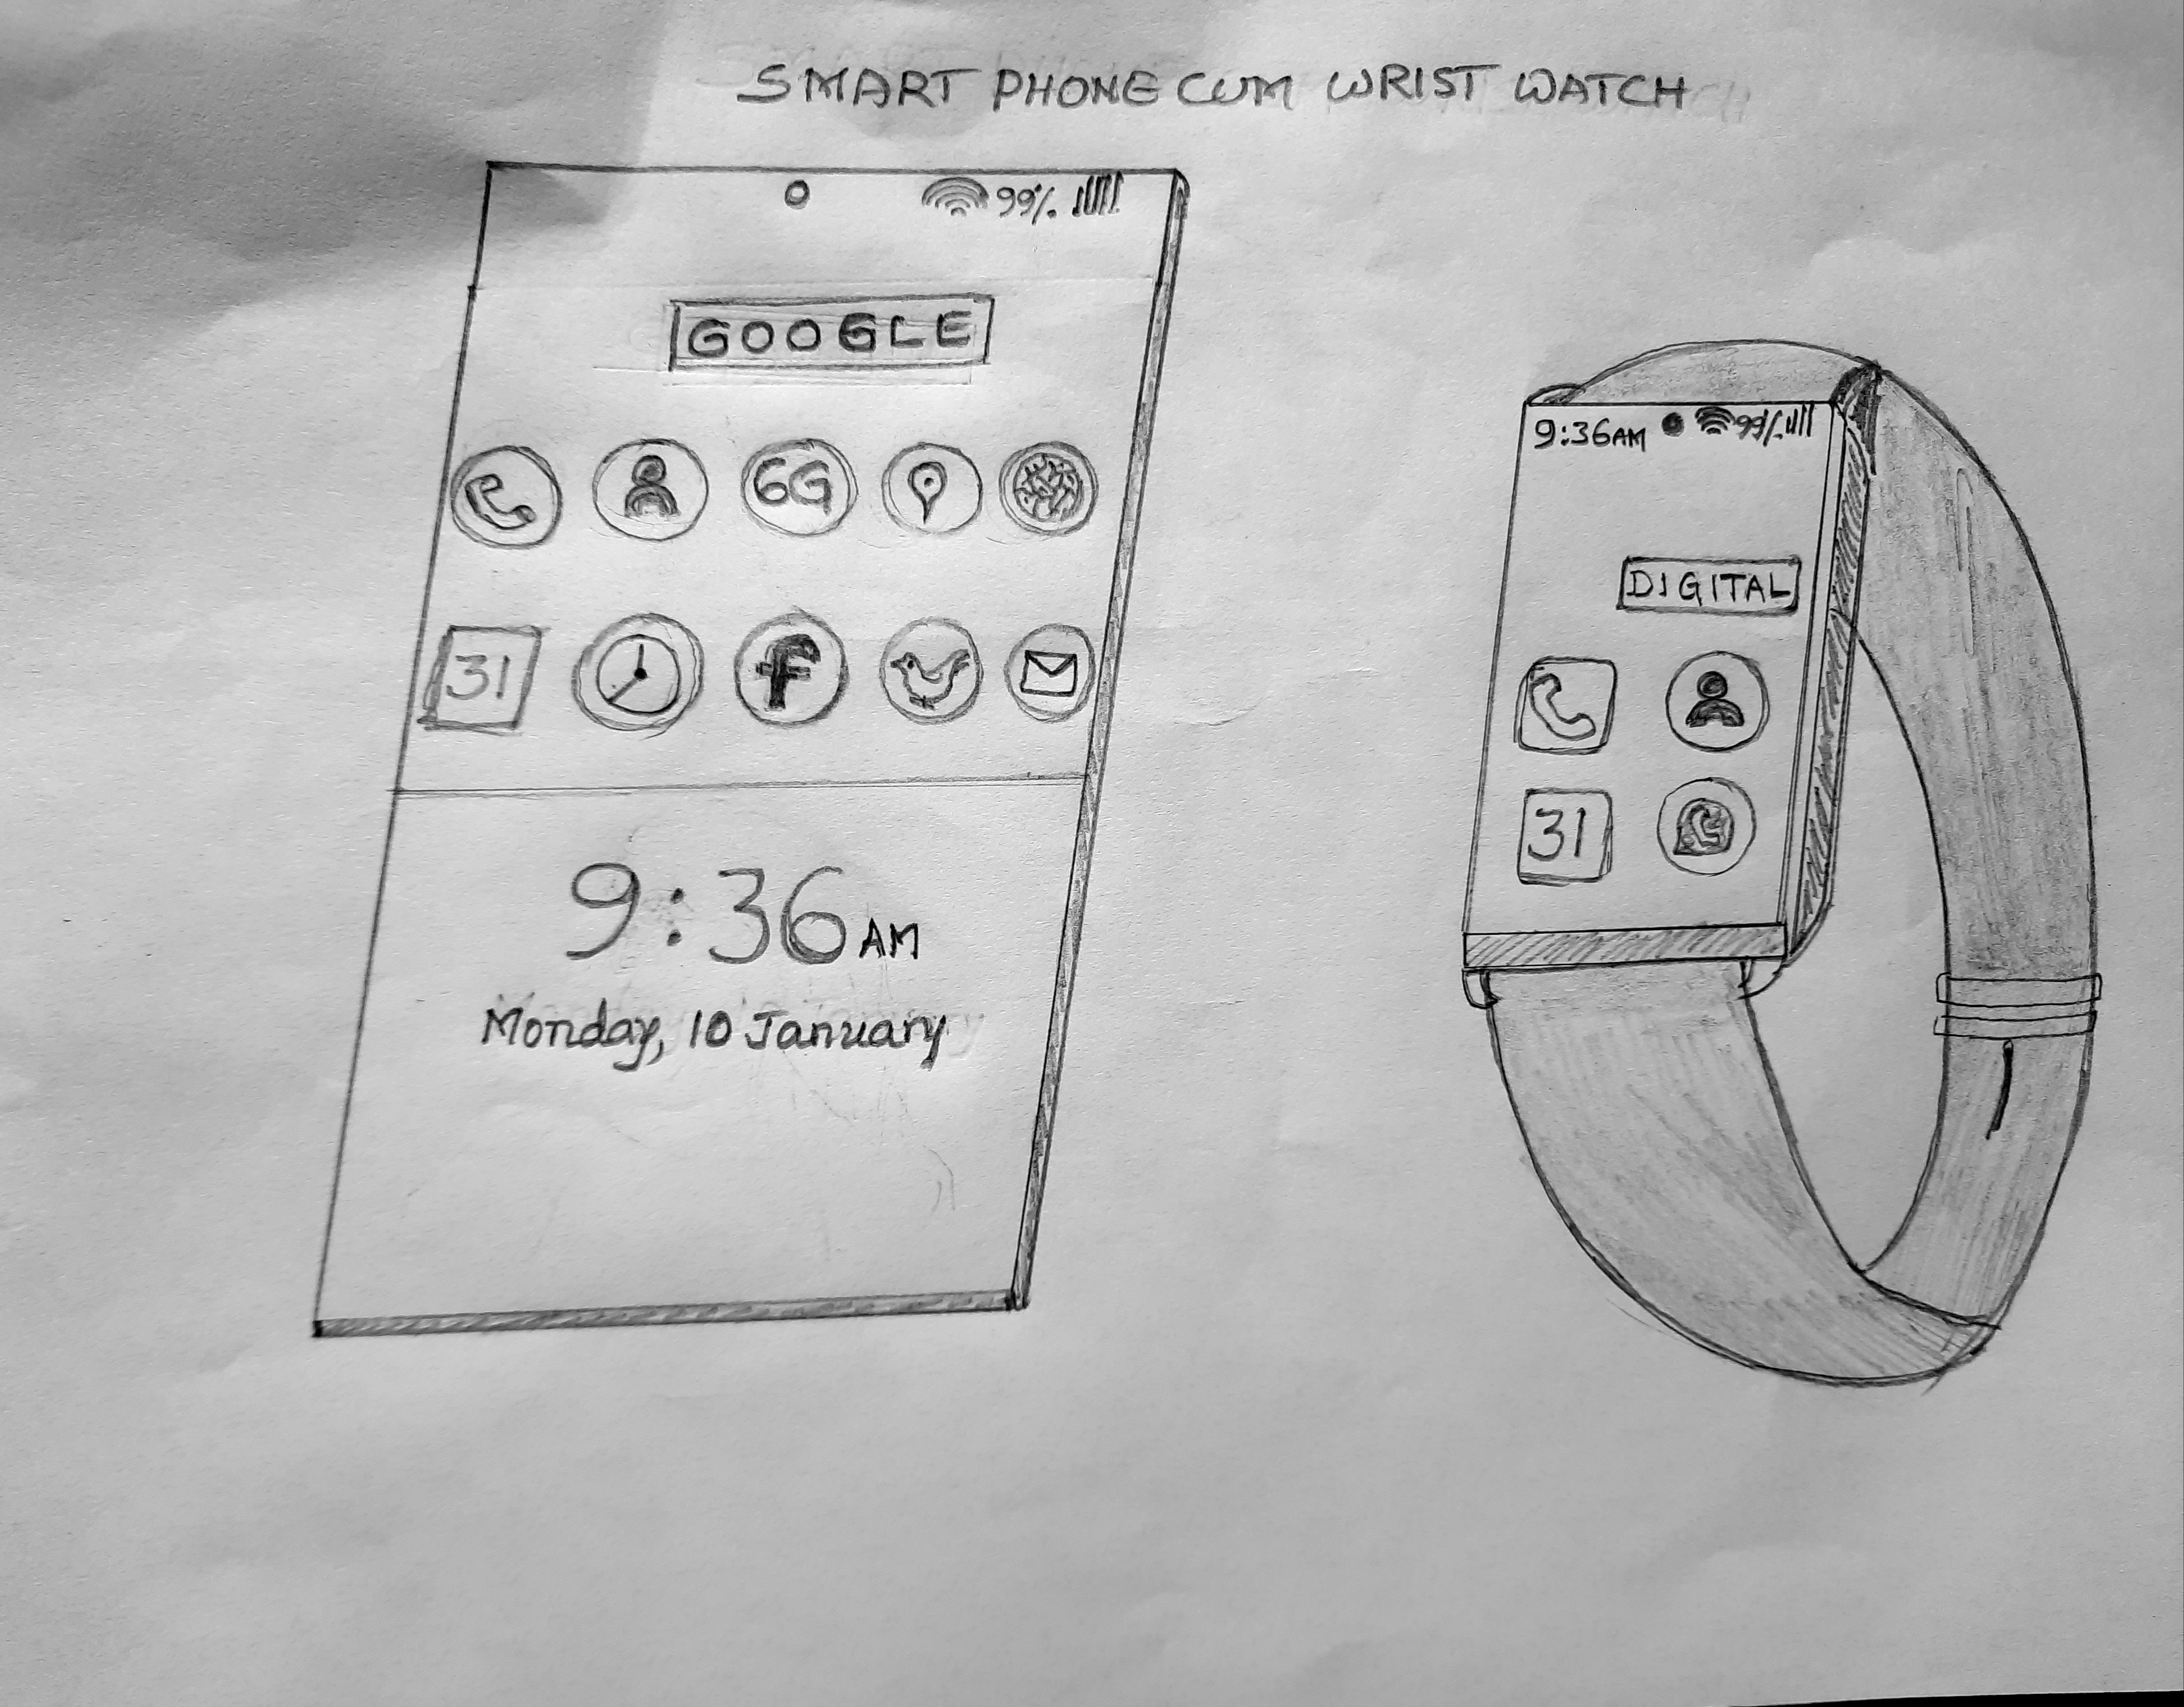 SMART PHONE CUM WRIST WATCH
99%
GOOGLE
6G
31
f
9:36 AM
Monday, 10 January
9:36AM 99%
DIGITAL
31